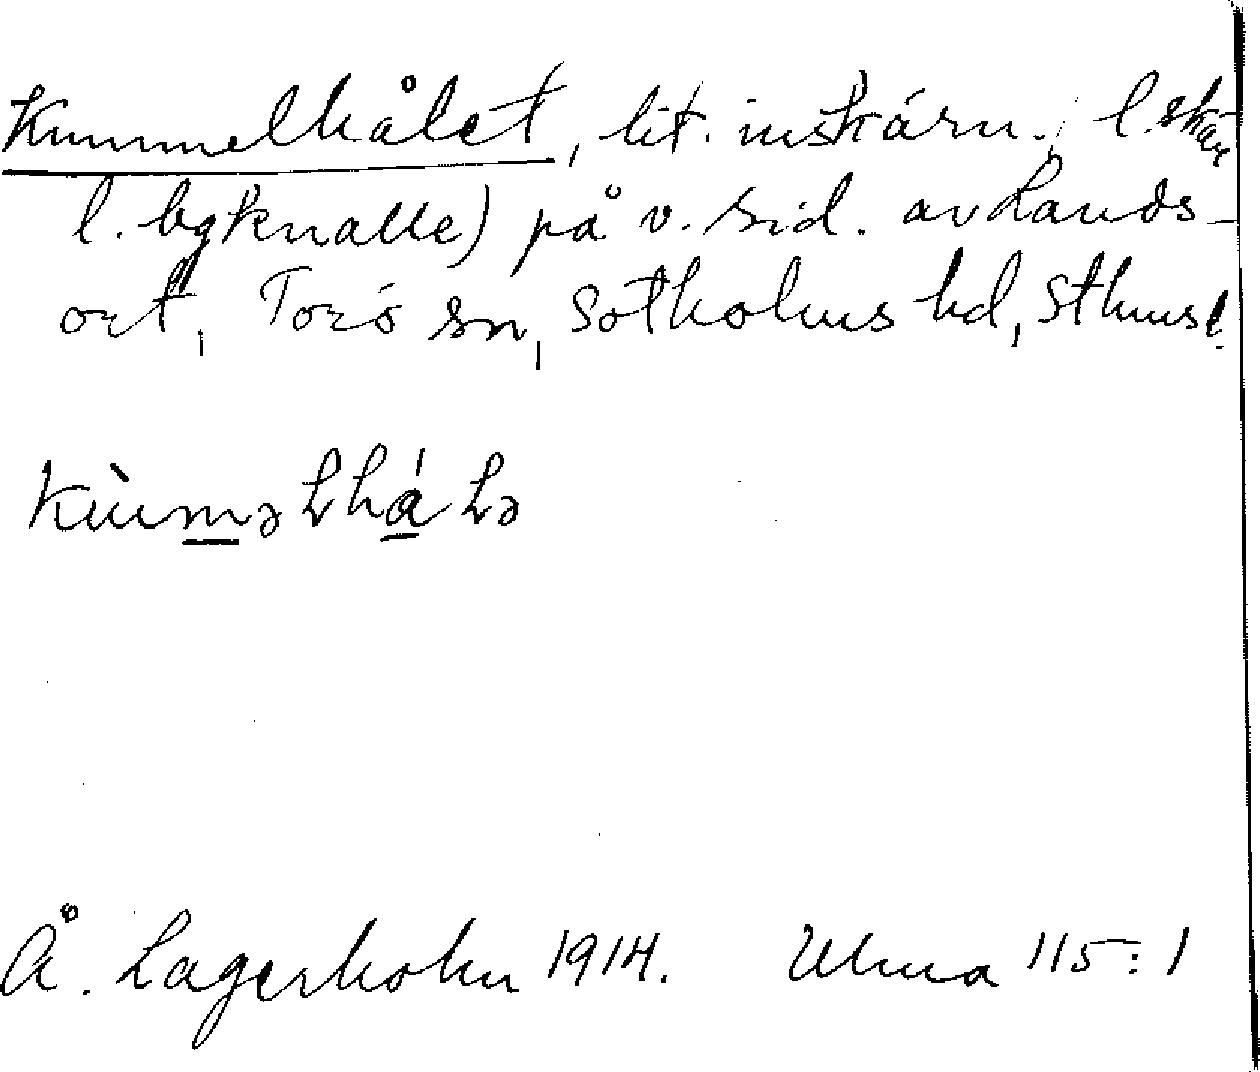 Kummelhålet, lit. inskärn. l. skär
l. bgknalle) på v. sid. av Lands-
ort, Torö sn, Sotholms hd, Sthms l.
KùmməLháLə
Å. Lagerholm 1914. Ulma 115:1